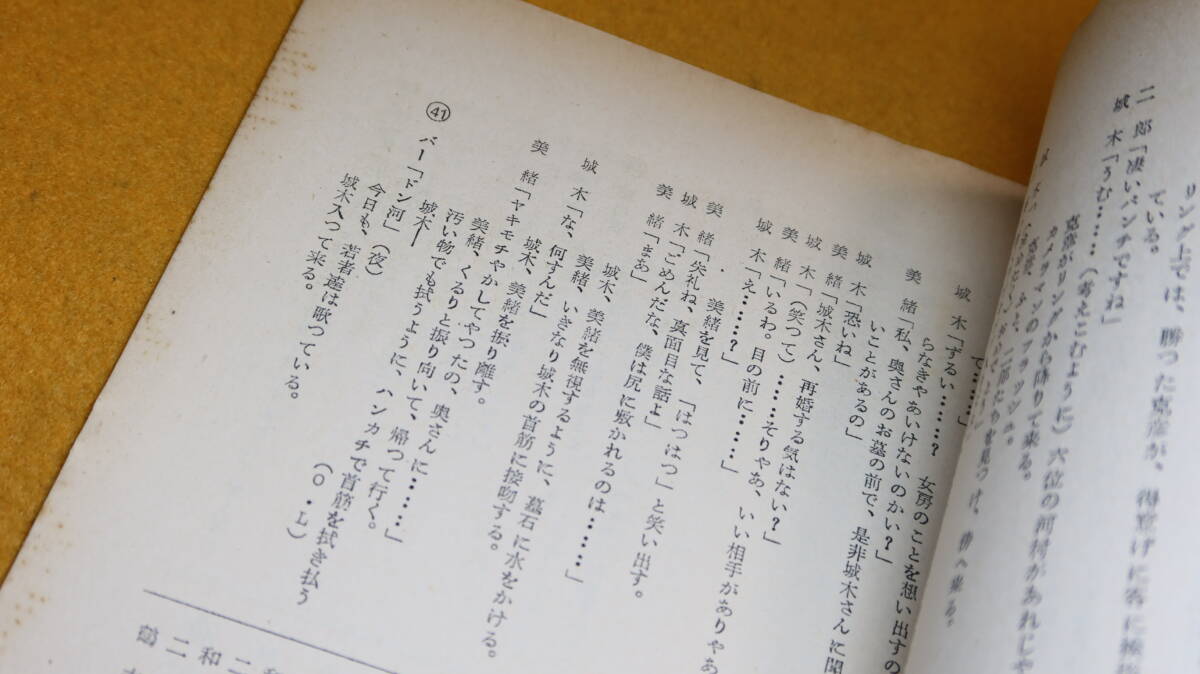 リング上では、勝った克彦が、得意げに客に
ている。
二　郎「凄いパンチですね」
城　木「うむ……（考えこむように）穴位の河村があれじゃ
克彦がリングから降りて来る。
カメラマンのフラッシュ。
克彦、ふと、二郎たちを見つけ、傍へ来る。
で………」
城　木「ずるい………？　女房のことを想い出すの
らなきゃあいけないのかい？」
美　緒「私、奥さんのお墓の前で、是非城木さんに聞
いことがあるの」
城　木「恐いね」
美　緒「城木さん、再婚する気はない？」
城　木「（笑つて）………そりやあ、いい相手がありやあ
美　緒「いるわ。目の前に……」
城　木「え………？」
美緒を見て、「はつはつ」と笑い出す。
美　緒「失礼ね、真面目な話よ」
城　木「ごめんだな、僕は尻に敷かれるのは……」
美　緒「まあ」
城木、美緒を無視するように、墓石に水をかける。
美緒、いきなり城木の首筋に接吻する。
城　木「な、何すんだ」
城木、美緒を振り離す。
美　緒「ヤキモチやかしてやつたの、奥さんに……」
美緒、くるりと振り向いて、帰つて行く。
汚い物でも拭うように、ハンカチで首筋を拭き払う
城木――
（O・L）
㊶　バー「ドン河」（夜）
今日も、若者達は歌つている。
城木入つて来る。
二
和
二
鶴